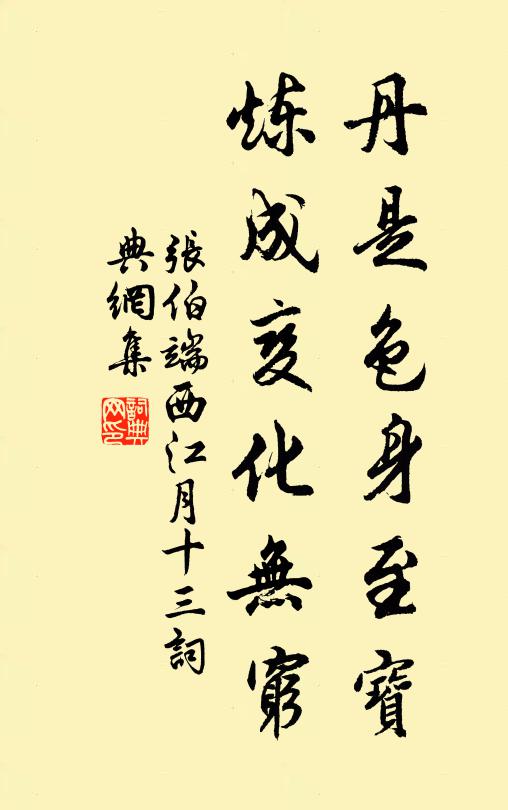 丹是色身至寶
炼成变化無窮
張伯端西江月十三詞
典網集
詞典网印